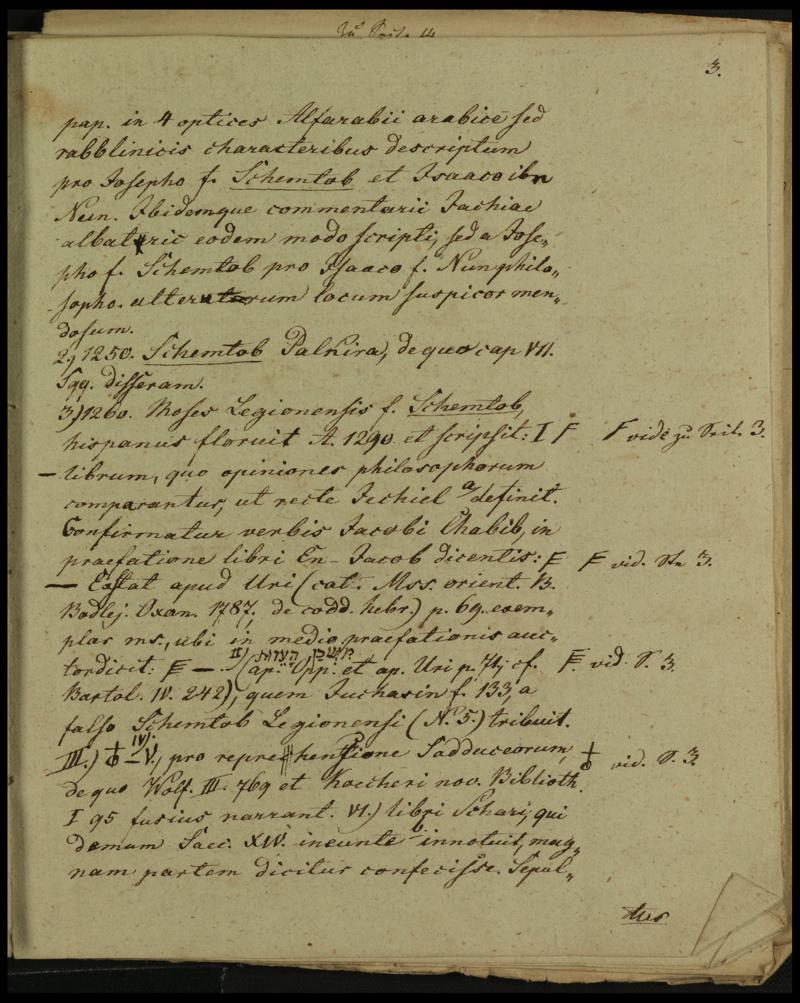 Zu Seite 4
3.
pap. in 4 optices Alfarabii arabice sed
rabblinicis characteribus descriptum
pro Josepho f. Schemtob et Isaaco ibn
Nun. Ibidemque commentarii Jachiae
albataric eodem modo scripti, sed a Jose„
pho f. Schemtob pro Isaaco f. Nun philo„
sopho. alterutrorum locum suspicor men„
dosum.
2.) 1250. Schemtob Palkira, de quo cap VII.
Sqq. disseram.
3) 1260. Moses Legionensis f. Schemtob,
hispanus floruit A. 1290 et scripsit: I F F vide zu Seit. 3.
— librum, quo opiniones philosophorum
comparantur, ut recte Jechiel a/ definit.
Confirmatur verbis Jacobi Chabib, in
praefatione libri En-Jacob dicentis: F F vid. Stn 3.
— Extat apud Uri (cat. Mss. orient. B.
Bodlej. Oxon. 1787. de codd. hebr.) p. 69. exem„
plar ms., ubi in medio praefationis auc„
tor dicit: F —. II) (ap. Opp. et ap. Uri p. 74; cf. F. vid. S. 3.
Bartol. IV. 242), quem Juchasin f. 133,a
falso Schemtob Legionensi (N. 5.) tribuit.
III.) IV) — V., pro reprehensione Sadduceorum, vid. S. 3.
de quo Wolf. III. 769 et Koecheri nov. Biblioth.
I 95 fusius narrant. VI.) libri Sohari, qui
demum Saec. XIV. ineunte b innotuit, mag„
nam partem dicitur confecisse. Sepul„
tus